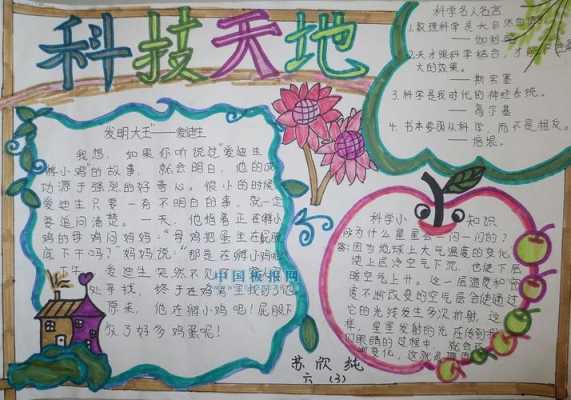 科技天地
发明大王"——爱迪生
我想，如果你听说过"爱迪生
孵小鸡"的故事，就会明白，他的成
功源于强烈的好奇心。很小的时候
爱迪生只要一有不明白的事，就一定
要追问清楚。一天，他指着正在孵小
鸡的母鸡问妈妈："母鸡把蛋坐在屁股
底下干吗？"妈妈说："那是在孵小鸡呢
爱迪生突然不见
处寻找，终于在鸡窝里找到了他
原来，他在孵小鸡呢！屁股下
放了好多鸡蛋呢！
中国板报网
科学名人名言
1.数理科学是大自然的语言。
——伽利略
2.天才跟科学结合，才能
大的效果。
——斯宾塞
3.科学是我时代的神经系统。
——高尔基
4.书本要围从科学，而不是相反。
——培根。
科学小知识
问：为什么星星会一闪一闪的？
答：因为地球上大气温度的变化
使上层冷空气下沉，也使下层
暖空气上升。这一层温度和密
度不断改变的空气层会使通过
它的光线发生多次折射，这
样，星星发射的光在传到我
们眼睛的过程中，就会
变化，这就
苏欣纯
六（3）